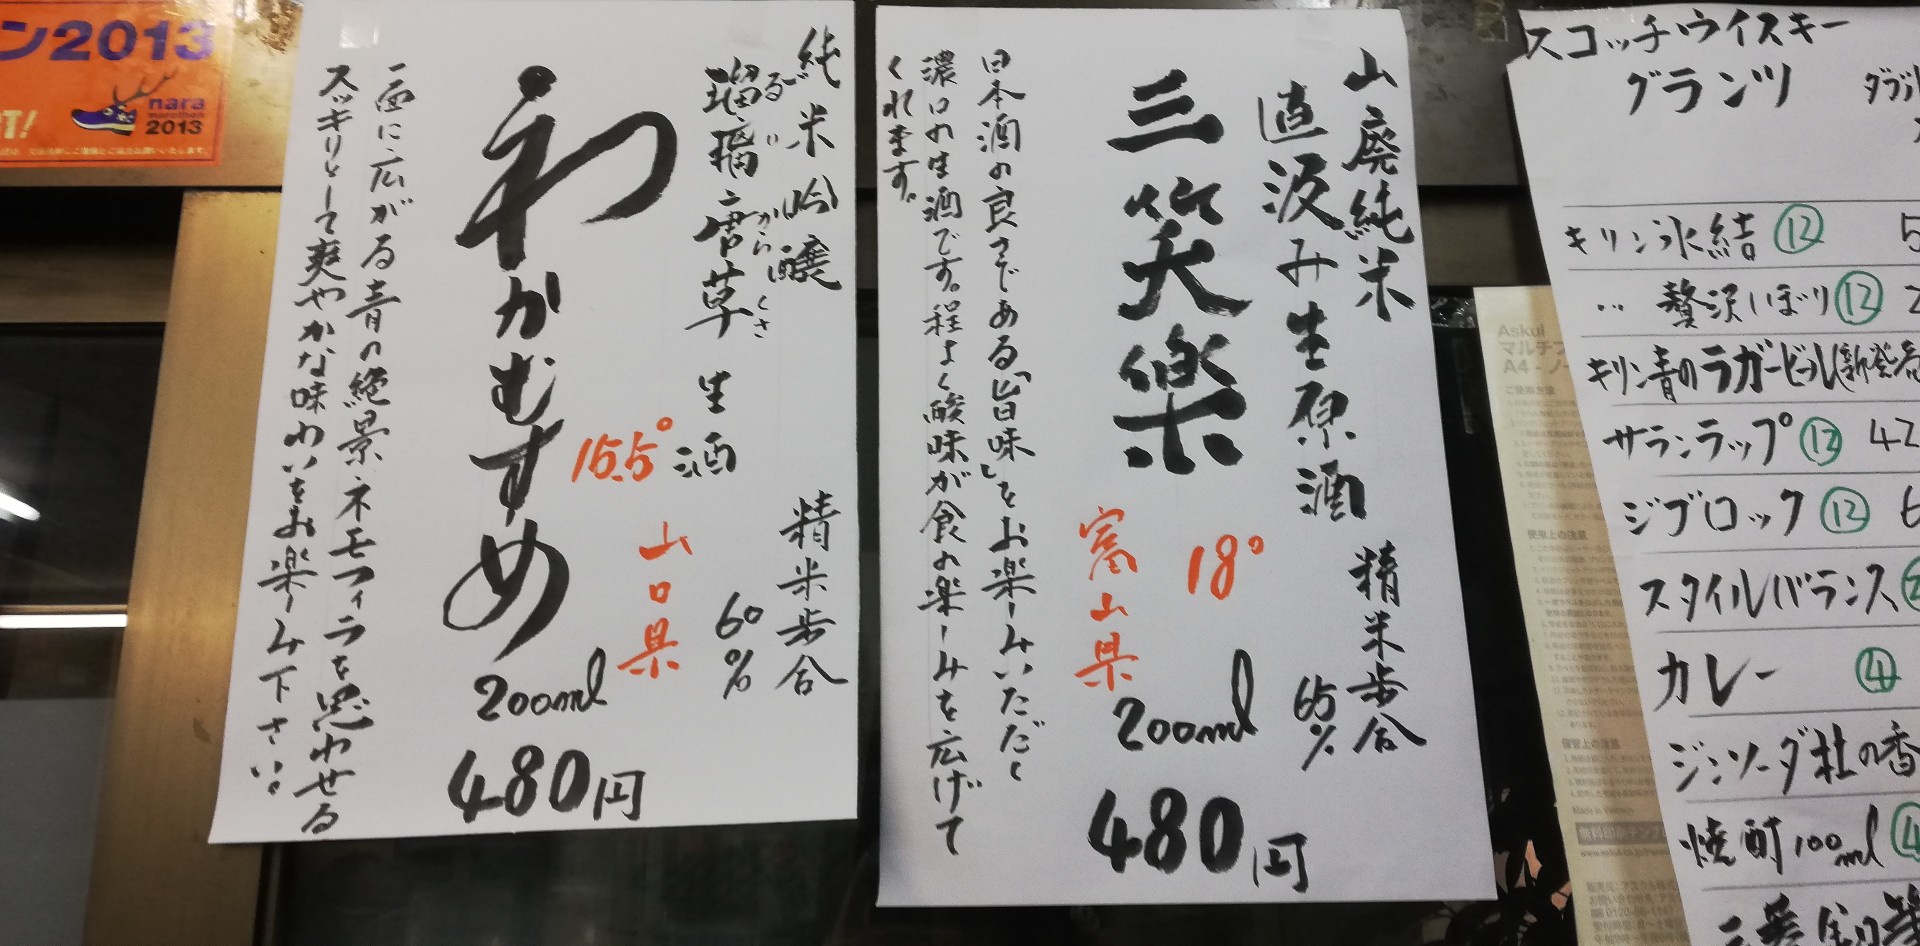 ン2013
nara
marathon
2013
純米吟醸
瑠璃唐草 生酒
るり からくさ
精米歩合
60%
わかむすめ
15.5°
山口県
200ml
480円
一面に広がる青の絶景、ネモフィラを思わせる
スッキリとして爽やかな味わいをお楽しみ下さい。
山廃純米
直汲み生原酒
精米歩合
65%
三笑楽
18°
富山県
200ml
480円
日本酒の良さである「旨味」をお楽しみいただく
濃口の生酒です。程よく酸味が食の楽しみを広げて
くれます。
スコッチウイスキー
グランツ
キリン氷結 ⑫ 5
〃 贅沢しぼり ⑫ 2
キリン青のラガービール(新発売
サランラップ ⑫ 42
ジブロック ⑫ 6
スタイルバランス
カレー ④
ジンソーダ杜の香
焼酎100ml ④
Askul
マルチプ
A4-ノー
ご使用方法
使用上の注意
保管上の注意
Made in Vietnam